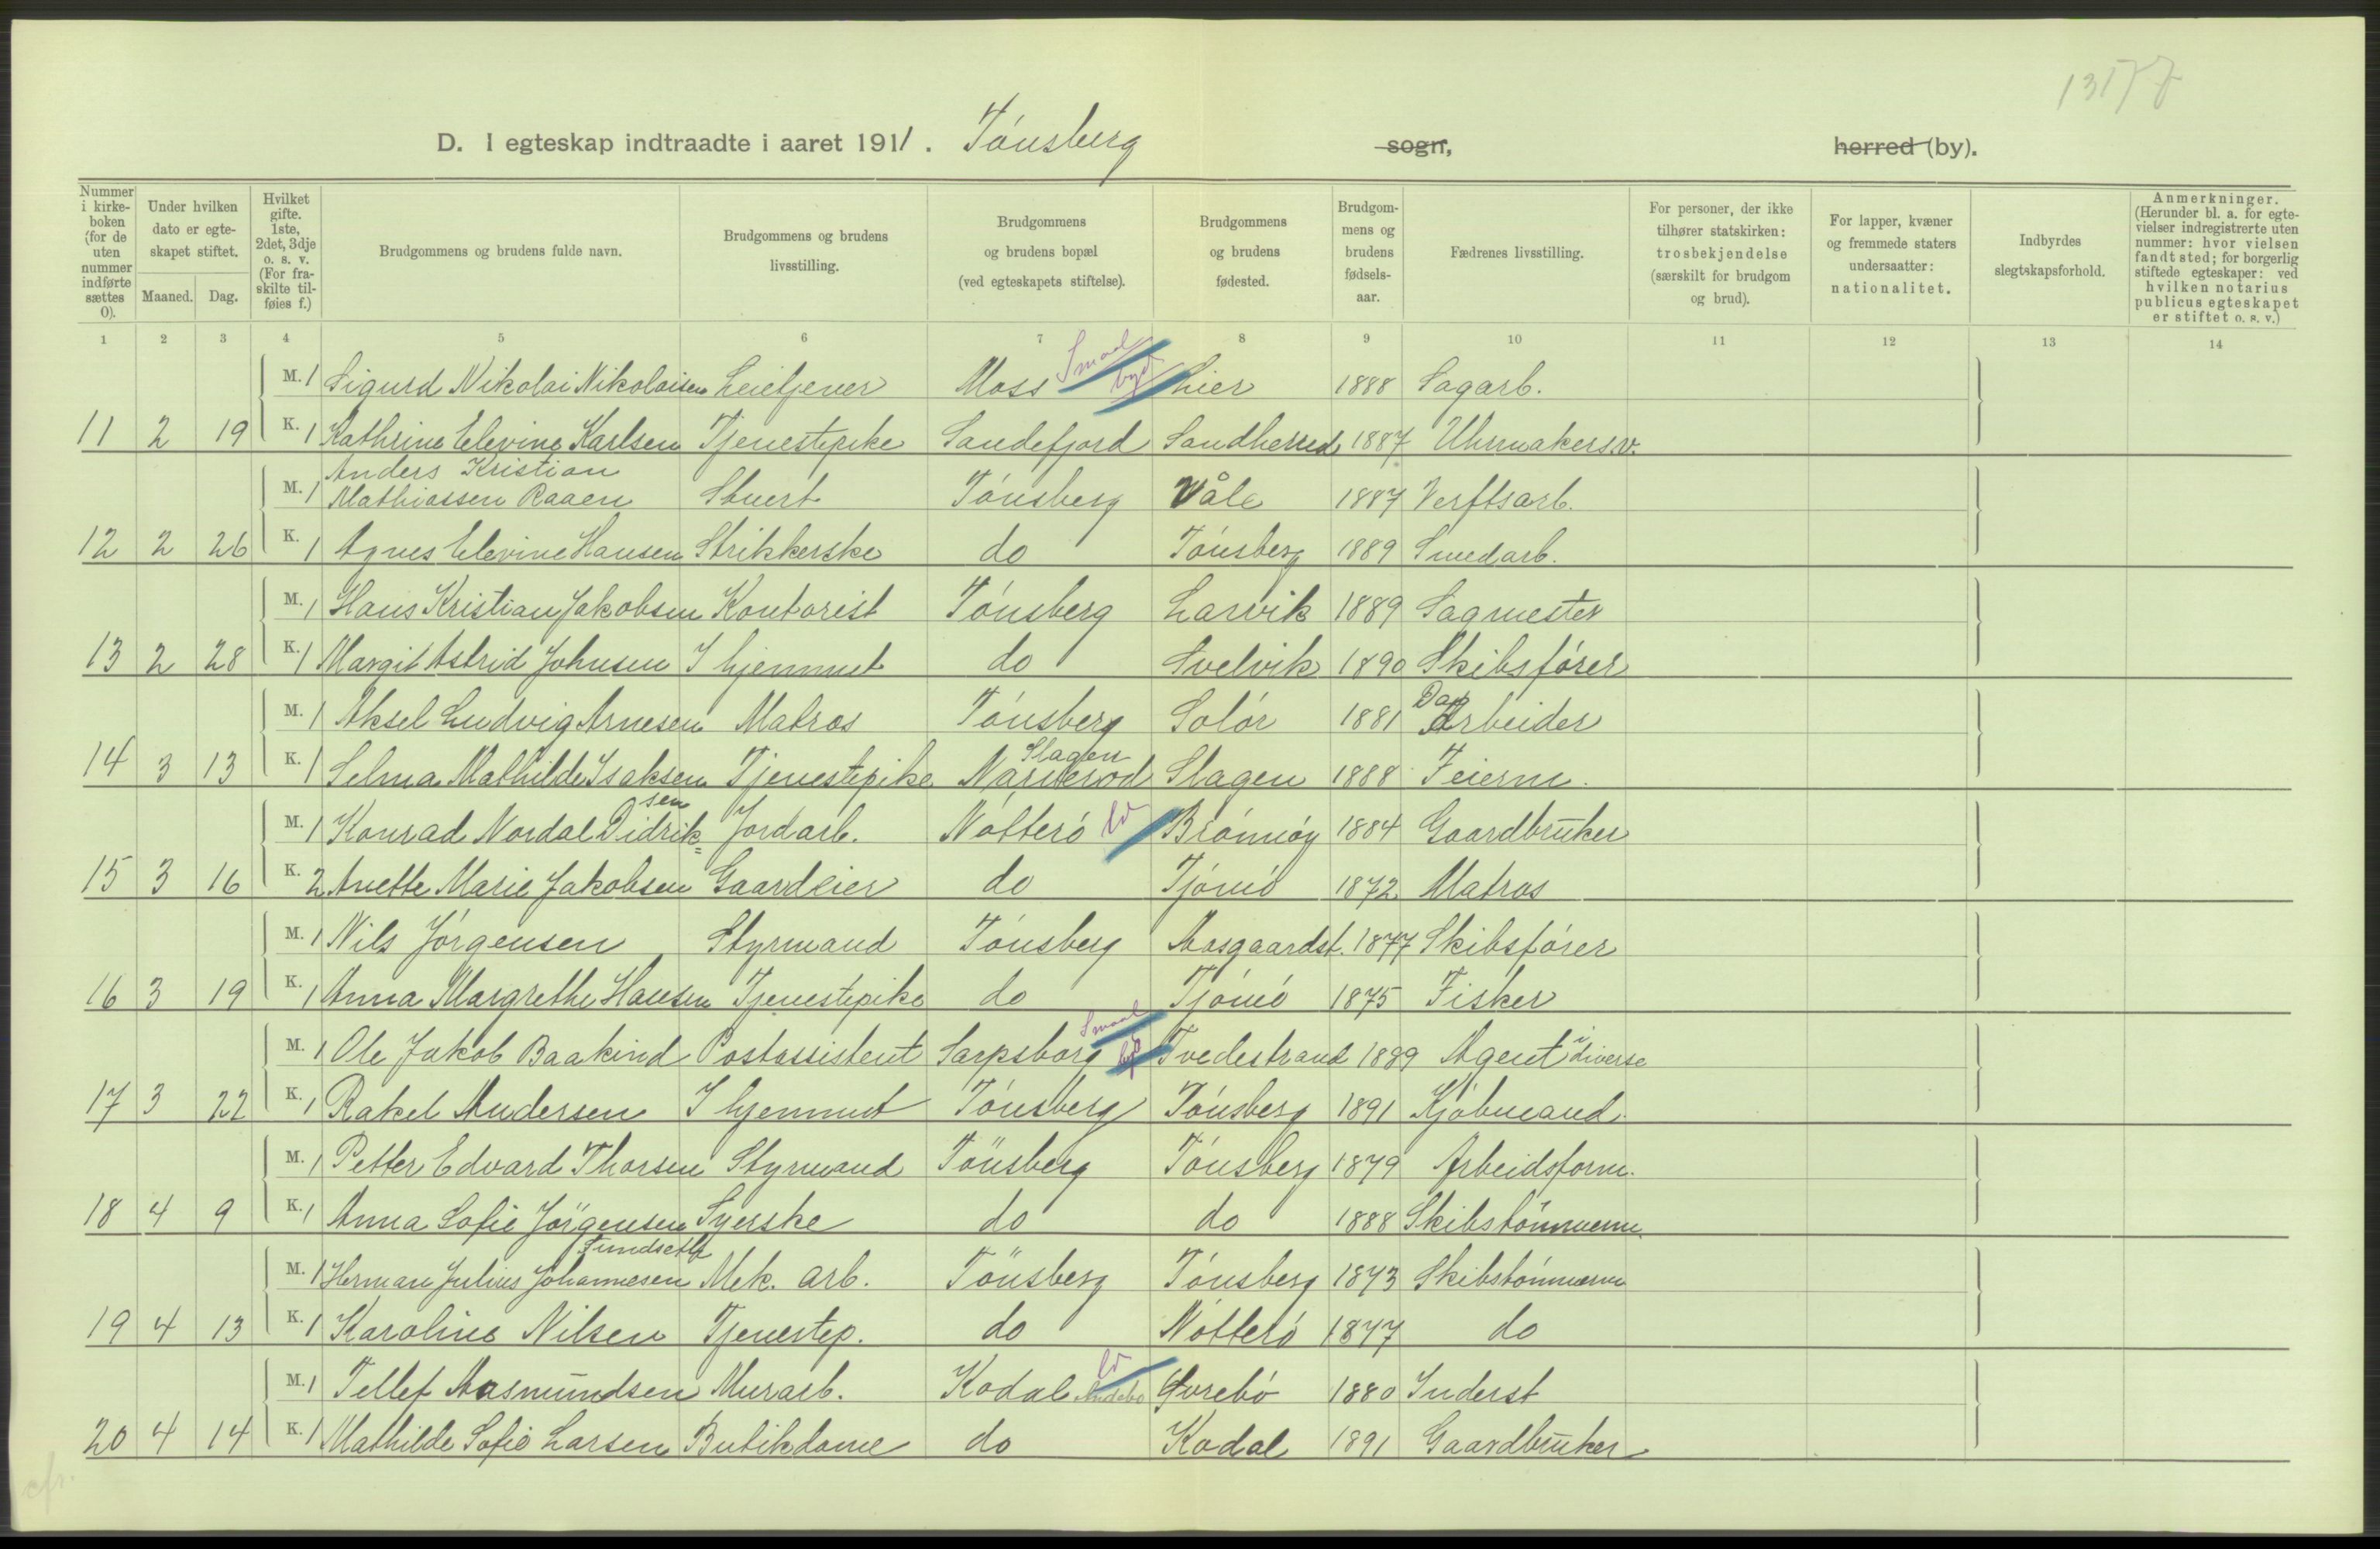 13177
D. I egteskap indtraadte i aaret 1911. Tónsberg sogn, herred (by).
Nummer i kirkeboken (for de uten nummer indførte sættes 0). | Under hvilken dato er egteskapet stiftet. Maaned. Dag. | Hvilket gifte. 1ste, 2det, 3dje o. s. v. (For fraskilte tilføies f.) | Brudgommens og brudens fulde navn. | Brudgommens og brudens livsstilling. | Brudgommens og brudens bopæl (ved egteskapets stiftelse). | Brudgommens og brudens fødested. | Brudgommens og brudens fødselsaar. | Fædrenes livsstilling. | For personer, der ikke tilhører statskirken: trosbekjendelse (særskilt for brudgom og brud). | For lapper, kvæner og fremmede staters undersaatter: nationalitet. | Indbyrdes slegtskapsforhold. | Anmerkninger. (Herunder bl. a. for egtevielser indregistrerte uten nummer: hvor vielsen fandt sted; for borgerlig stiftede egteskaper: ved hvilken notarius publicus egteskapet er stiftet o. s. v.)
1 2 3 4 5 6 7 8 9 10 11 12 13 14
M. 1 Sigurd Nikolai Nikolaisen Leietjener Moss Smaal byd Lier 1888 Sagarb.
11 2 19 K. 1 Kathrine Elevine Karlsen Tjenestepike Sandefjord Sandherred 1887 Uhrmakersv.
Anders Kristian
M. 1 Mathiassen Raaen Stuert Tónsberg Våle 1887 Verftsarb.
12 2 26 K. 1 Agnes Elevine Hansen Strikkerske do Tónsberg 1889 Smedarb.
M. 1 Hans Kristian Jakobsen Kontorist Tónsberg Larvik 1889 Sagmester
13 2 28 K. 1 Margit Astrid Johnsen I hjemmet do Svelvik 1890 Skibsfórer
Dag
M. 1 Aksel Ludvig Arnesen Matros Tónsberg Solór 1881 Arbeider
Slagen
14 3 13 K. 1 Selma Mathilde Isaksen Tjenestepike Narverod Slagen 1888 Feierm.
sen
M. 1 Konrad Nordal Didrik= Jordarb. Nótteró Brónnóy 1884 Gaardbruker
15 3 16 K. 2 Anette Marie Jakobsen Gaardeier do Tjómó 1872 Matros
M. 1 Nils Jórgensen Styrmand Tónsberg Aasgaardst. 1877 Skibsfórer
16 3 19 K. 1 Anna Margrethe Hansen Tjenestepike do Tjómó 1875 Fisker
M. 1 Ole Jakob Baakind Postassistent Sarpsborg Smaal byd Tvedestrand 1889 Agent i diverse
17 3 22 K. 1 Rakel Andersen I hjemmet Tónsberg Tónsberg 1891 Kjóbmand.
M. 1 Petter Edvard Thorsen Styrmand Tönsberg Tónsberg 1879 Arbeidsform.
18 4 9 K. 1 Anna Sofie Jörgensen Syerske do do 1888 Skibstómmerm.
Tundseth
M. 1 Herman Julius Johannesen Mek. arb. Tönsberg Tónsberg 1873 Skibstómmerm
19 4 13 K. 1 Karoline Nilsen Tjenestep. do Nótteró 1877 do
M. 1 Tellef Aasmundsen Murarb. Kodal Andebo Øvrebó 1880 Inderst
20 4 14 K. 1 Mathilde Sofie Larsen Butikdame do Kodal 1891 Gaardbruker
cfr.